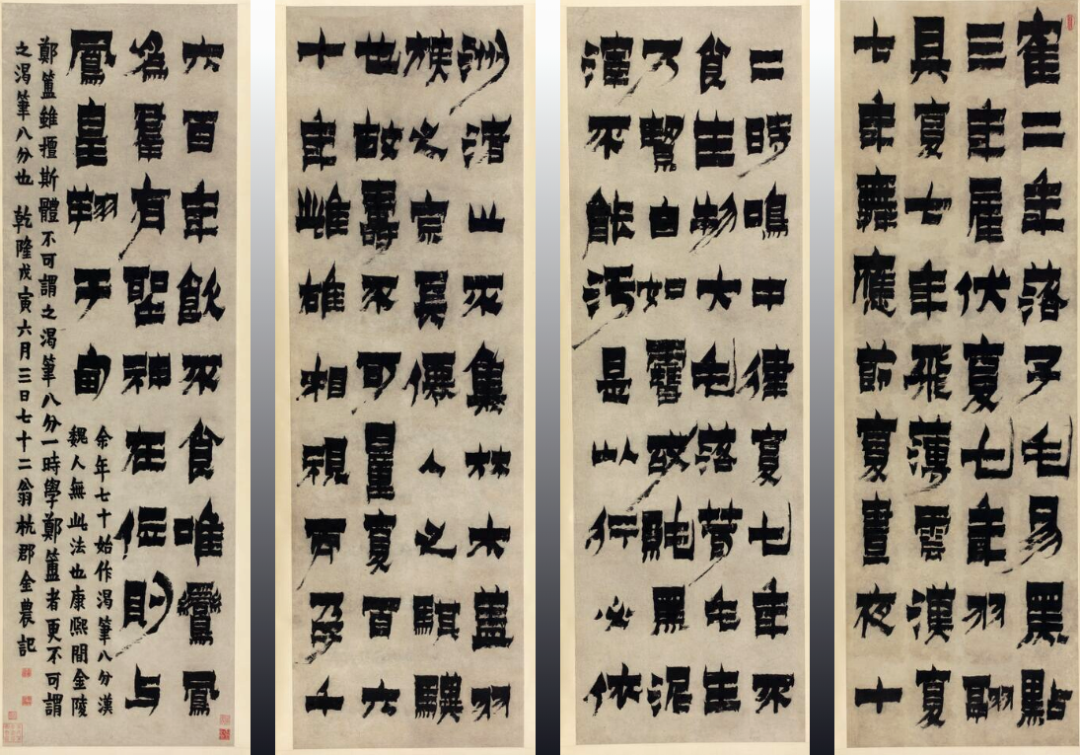 隺二年落子毛易黑點
三年雇伏夏七年羽翮
具夏七年飛薄雲漢夏
七年舞應節夏晝夜十
二時鳴中律夏七年不
食生物大毛落茸毛生
乃絜白如雪故黗黑泥
滓不能污是以行必依
洲渚止不集林木蓋羽
族之宗冥僊人之騏驥
也故壽不可量夏百六
十年雌雄相視而孕千
六百年飲不食唯鸞鳳
為羣有聖神在位則与
鳳皇翔于甸
余年七十始作渴筆八分漢
魏人無此法也康熙間金陵
鄭簠雖擅斯體不可謂之渴筆八分一時學鄭簠者更不可謂
之渴筆八分也 乾隆戊寅六月三日七十二翁杭郡金農記